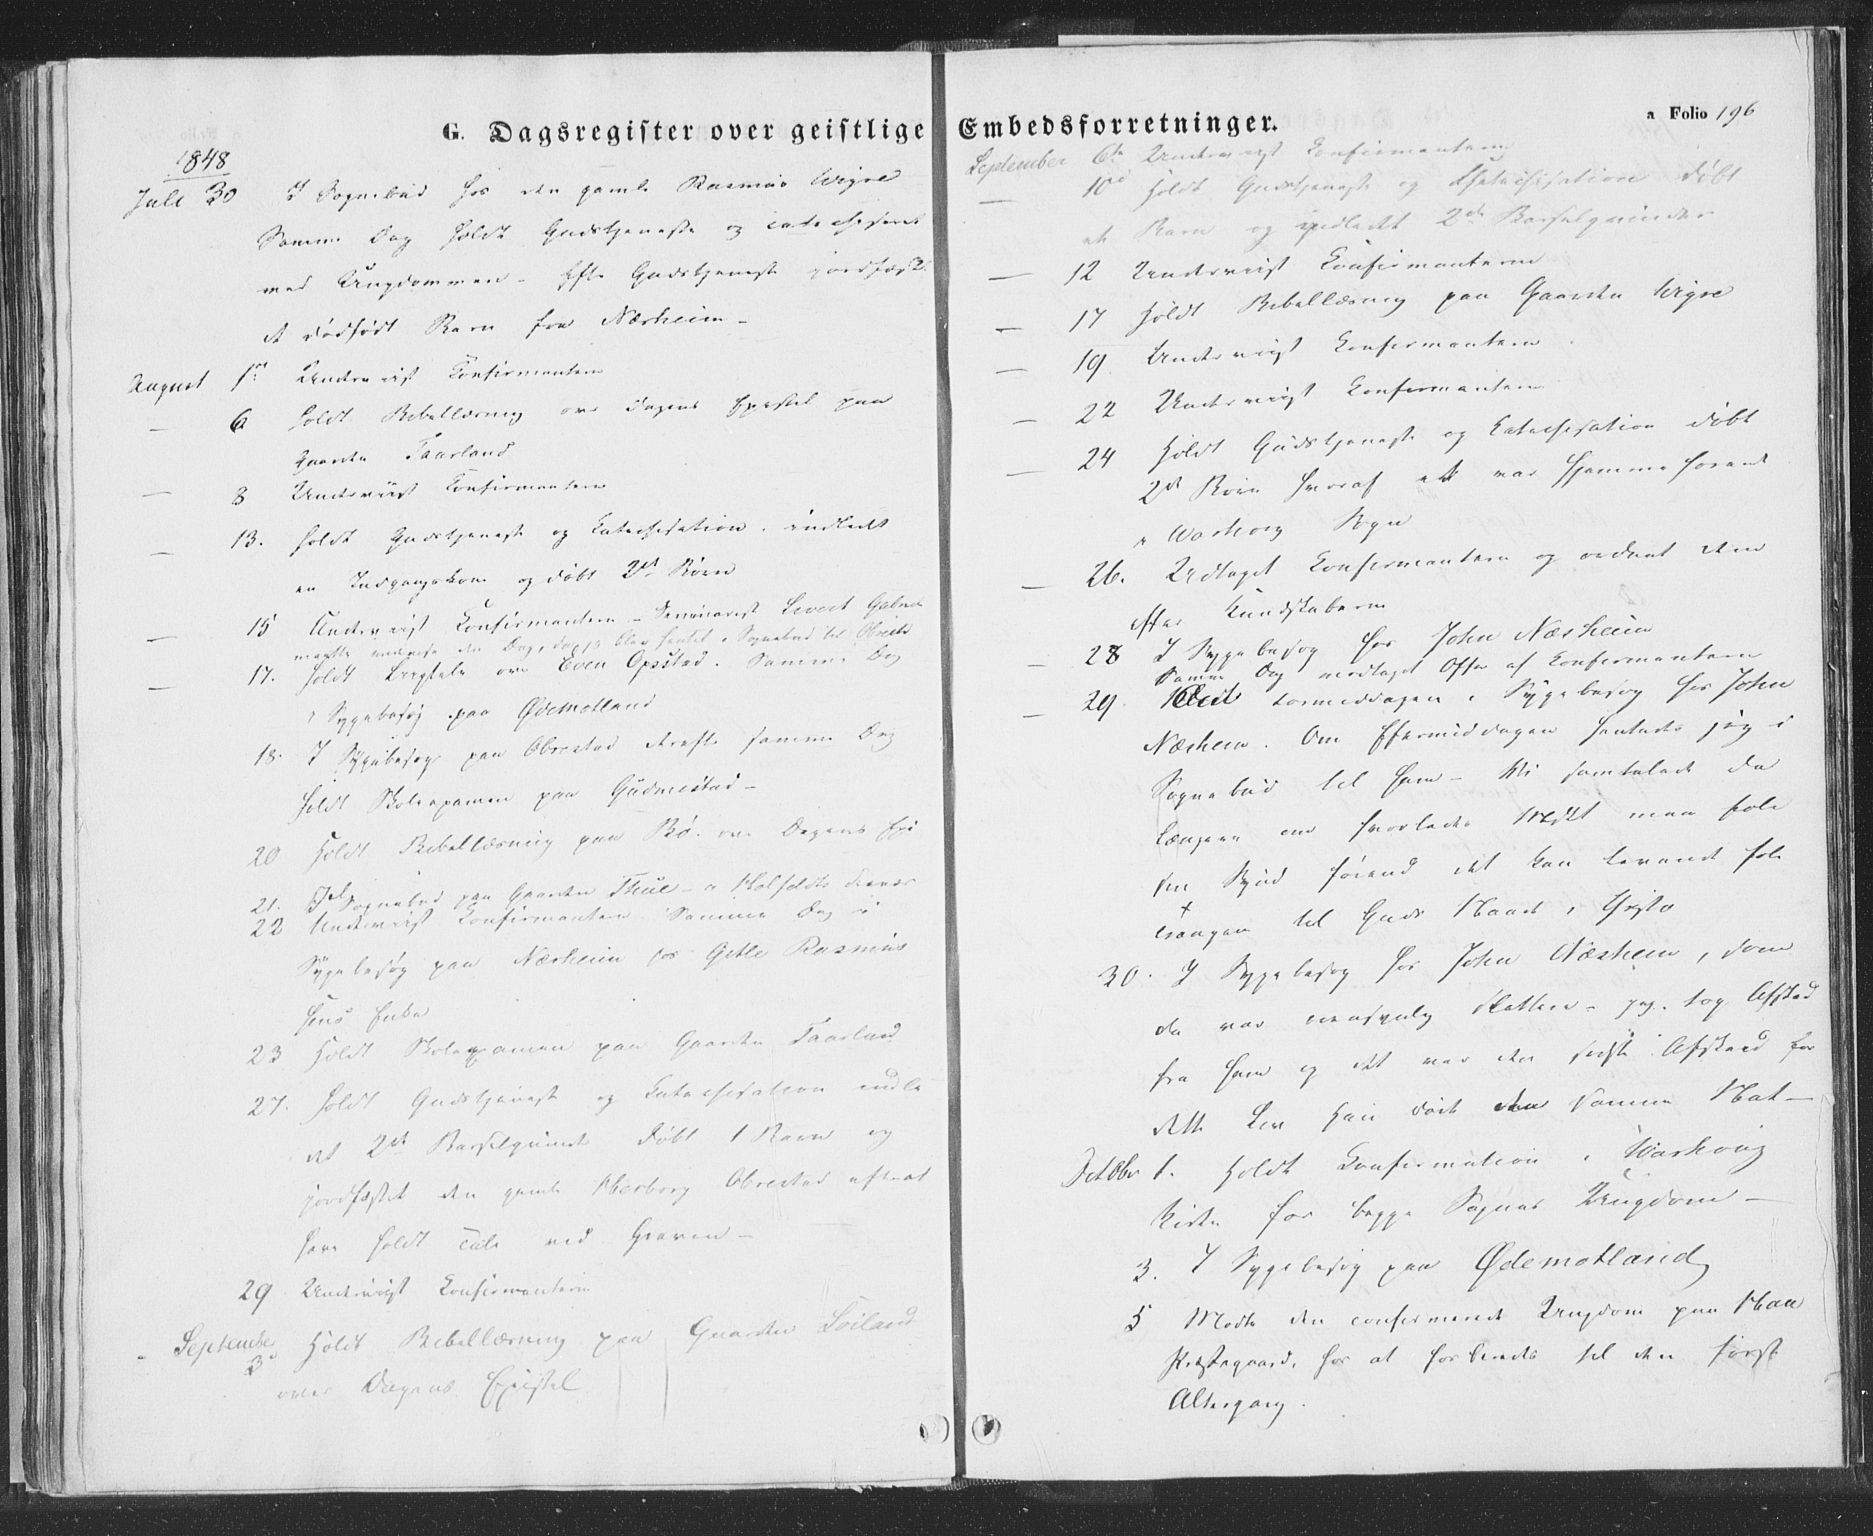 G. Dagsregister over geistlige Embedsforretninger.
a Folio 196
1848
Juli 30 I Sognebud hos den gamle Rasmus Wigre
Samme Dag holdt Gudstjeneste og catechiseret
med Ungdommen - Efter Gudstjeneste jordfæst
et dødfødt Barn fra Nærheim -
August 1ste Underviist Confirmanterne
— 6 holdt Bibellæsning over Dagens Epistel paa
Gaarden Taarland
— 8 Underviist Confirmanterne
— 13. holdt Gudstjeneste og Catechisation. indledt
en Indgangskone og døbt 2de Børn
— 15 Underviist Confirmanterne - Seminarist Sivert
den Dag, da jeg blev hentet i Sognebud til Obrestad
— 17. holdt Liigtale over Even Opstad. Samme Dag
i Sygebesøg paa Ødemotland
18. I Sygebesøg paa Obrestad derefter samme Dag
holdt Skoleexamen paa Gudmestad -
20 Holdt Bibellæsning paa Bø. over Dagens Epi
21. I Sognebud paa Gaarden Thue -
22 Underviist Confirmanterne Samme Dag i
Sygebesøg paa Nærheim hos Gitle Rasmus
sens Enke
23 Holdt Skoleexamen paa Gaarden Taarland
27. holdt Gudstjeneste og Catechisation indle
det 2de Barselqvinder døbt 1 Barn og
jordfæstet den gamle Obrestad efter at
have holdt Tale ved Graven -
29 Underviist Confirmanterne
September 3 Holdt Bibellæsning paa Gaarden Loiland
over Dagens Epistel
September 6te Underviist Confirmanterne
— 10de Holdt Gudstjeneste og Chatechisation døbt
et Barn og indledt 2de Barselqvinder
— 12 Underviist Confirmanterne
— 17 Holdt Bibellæsning paa Gaarden Wigre
— 19. Underviist Confirmanterne
— 22 Underviist Confirmanterne
— 24 Holdt Gudstjeneste og Catechisation døbt
2de Børn hvoraf et var hjemmehørende
i Warhoug Sogn
— 26. Udtaget Confirmanterne og ordnet dem
efter Kundskaberne
— 28 I Sygebesøg hos John Nærheim
Samme Dag modtaget Offer af Confirmanterne
— 29. formiddagen i Sygebesøg hos John
Nærheim. Om Eftermiddagen hentedes jeg i
Sognebud til ham - Vi samtalede da
længere om hvorledes man føle
sin Synd førend det kan levende føle
Trangen til Guds Naade i Christo
30. I Sygebesøg hos John Nærheim, som
da var meget - jeg tog Afsked
fra ham og det var den sidste Afsked for
dette Liv Han døde den samme Nat -
October 1. Holdt Confirmation i Warhoug
Kirke for begge Sognes Ungdom -
3. I Sygebesøg paa Ødemotland
5 Mødte den confirmerede Ungdom paa Naae
Præstegaard, for at forberede til den første
Altergang.